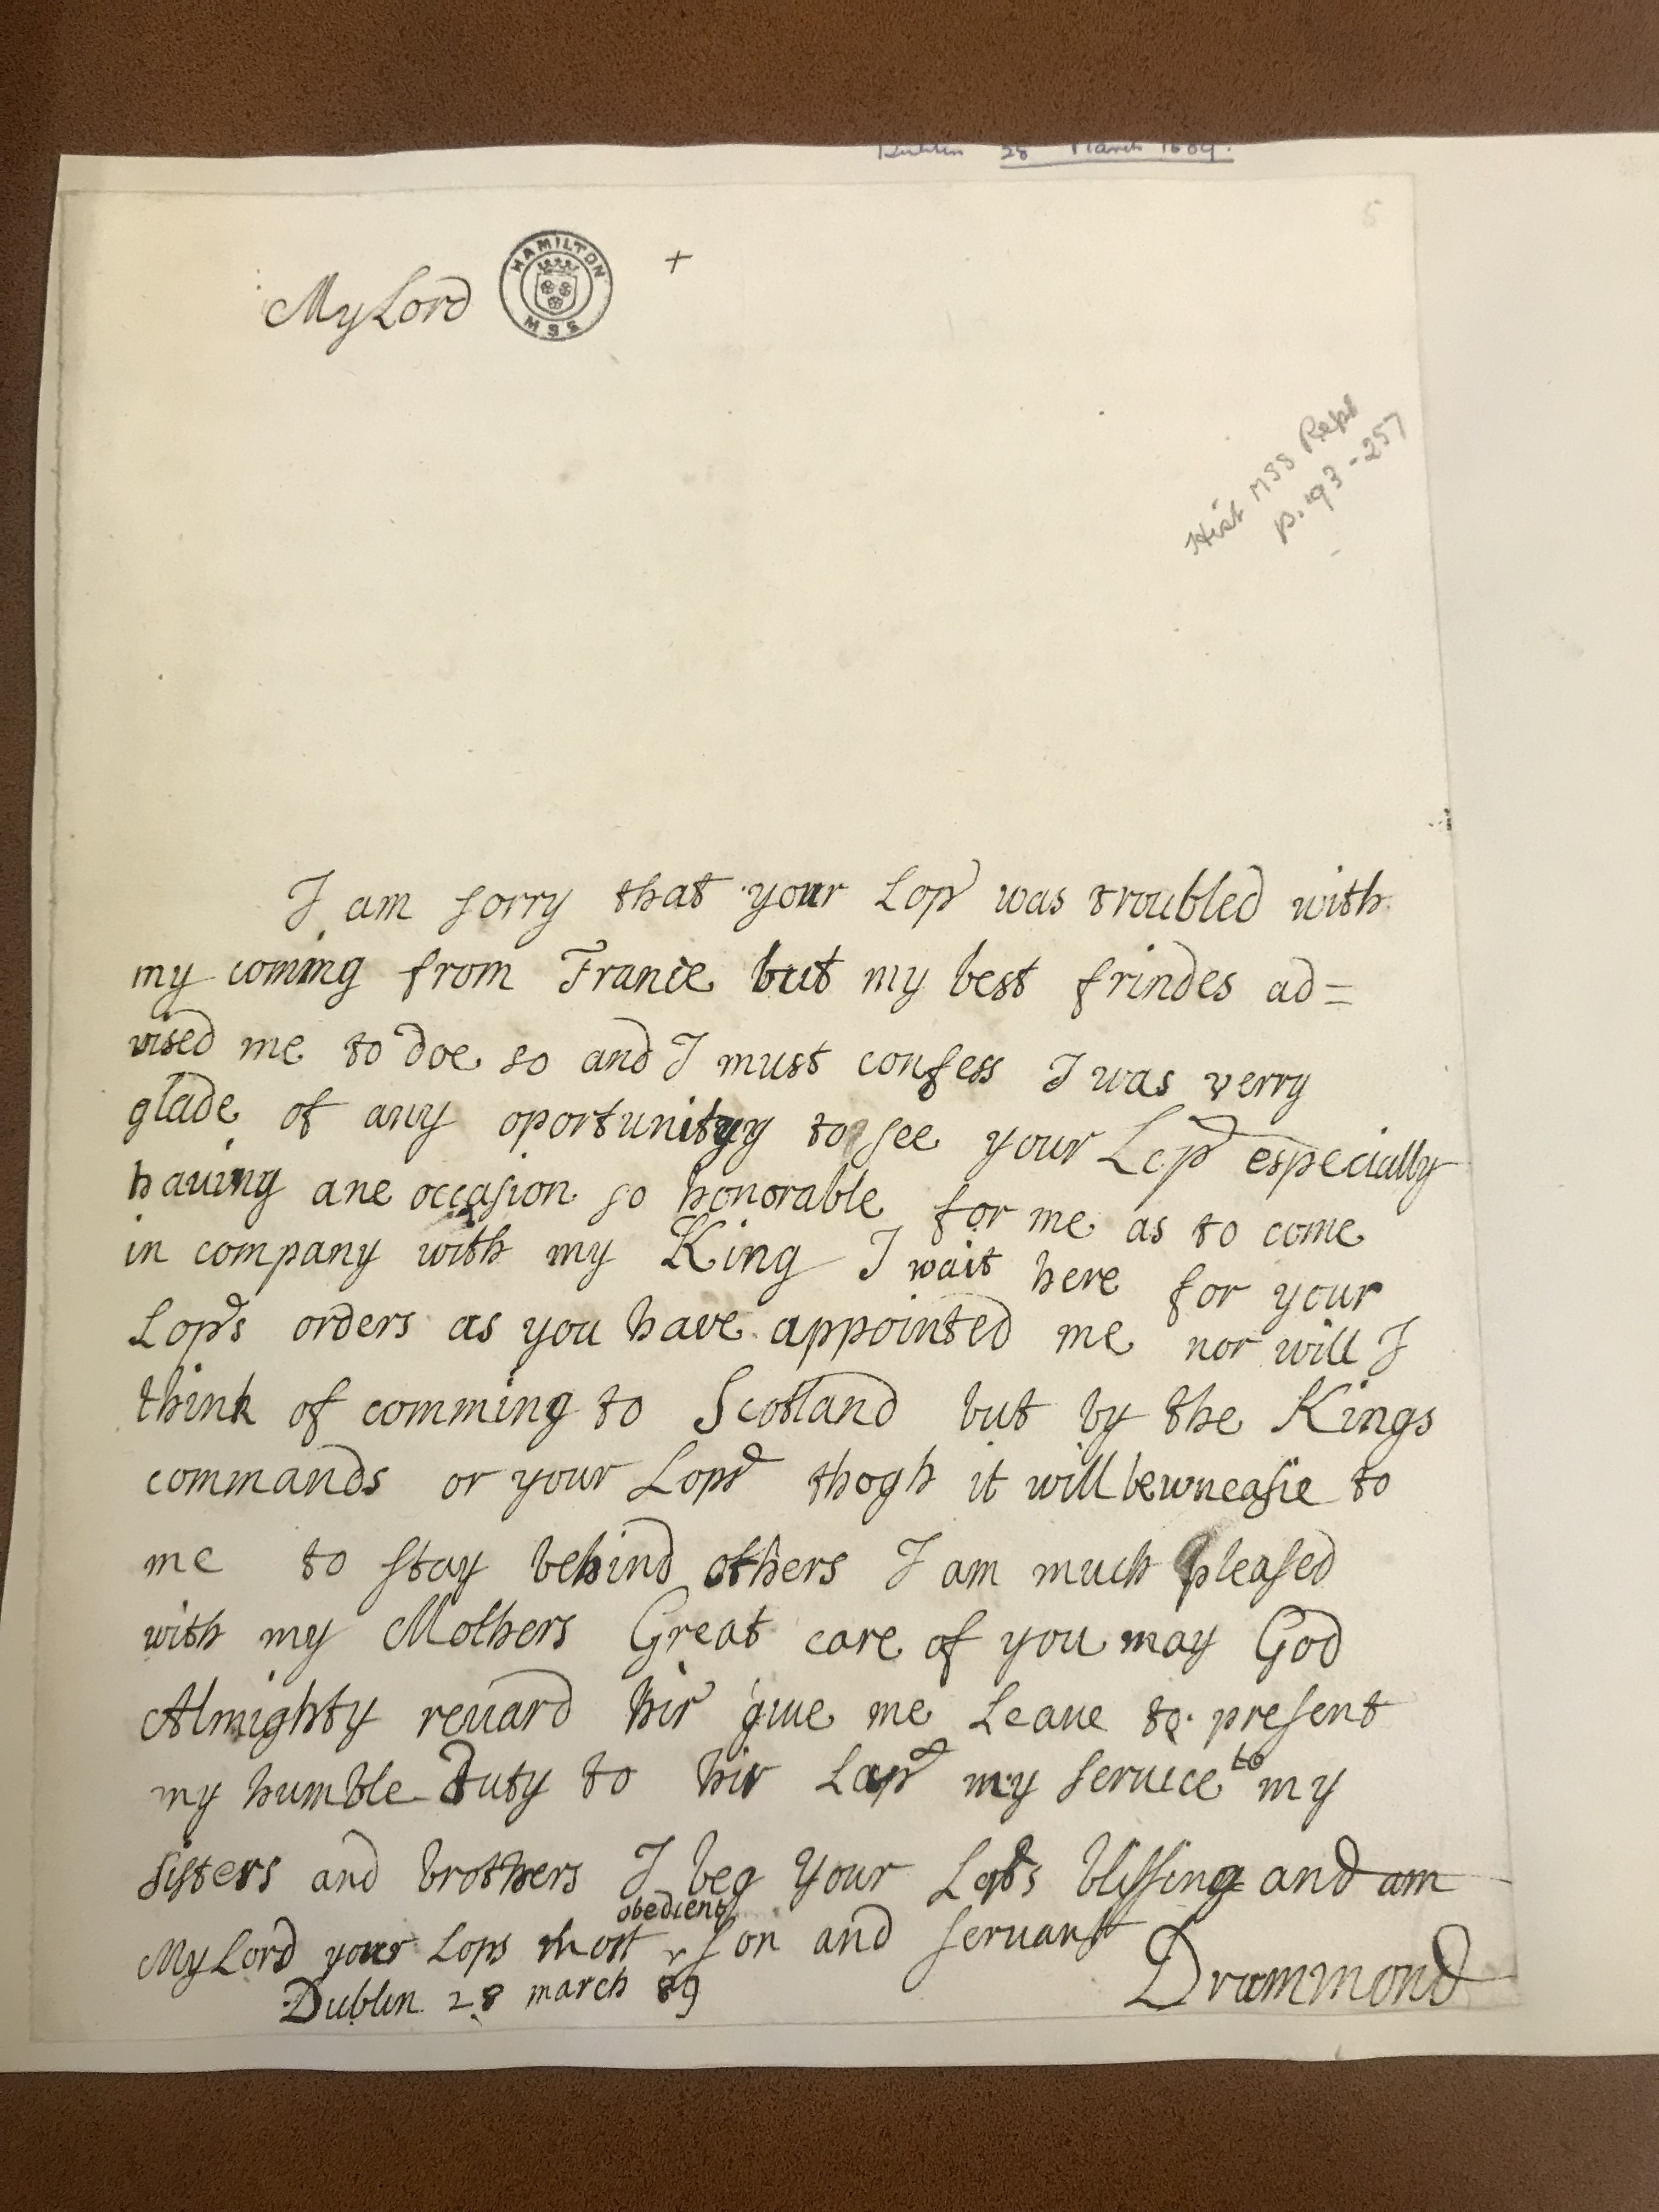 Dublin 28 March 1689.
5
My Lord
HAMILTON
MSS
+
Hist MSS Rept
p. 193-257
I am sorry that your Lop was troubled with
my coming from France but my best frindes ad=
vised me to doe so and I must confess I was verry
glade of any oportunityy to see your Lop especially
hauing ane occasion so honorable for me as to come
in company with my King I wait here for your
Lops orders as you have appointed me nor will I
think of comming to Scotland but by the Kings
commands or your Lops thogh it will be wneasie to
me to stay behind others I am much pleased
with my Mothers Great care of you may God
Almighty reuard hir giue me Leaue to present
my humble Duty to hir Lap my seruice to my
sisters and brothers I beg your Lops blissing and am
My Lord your Lops most obedient son and seruant
Drummond
Dublin 28 march 89